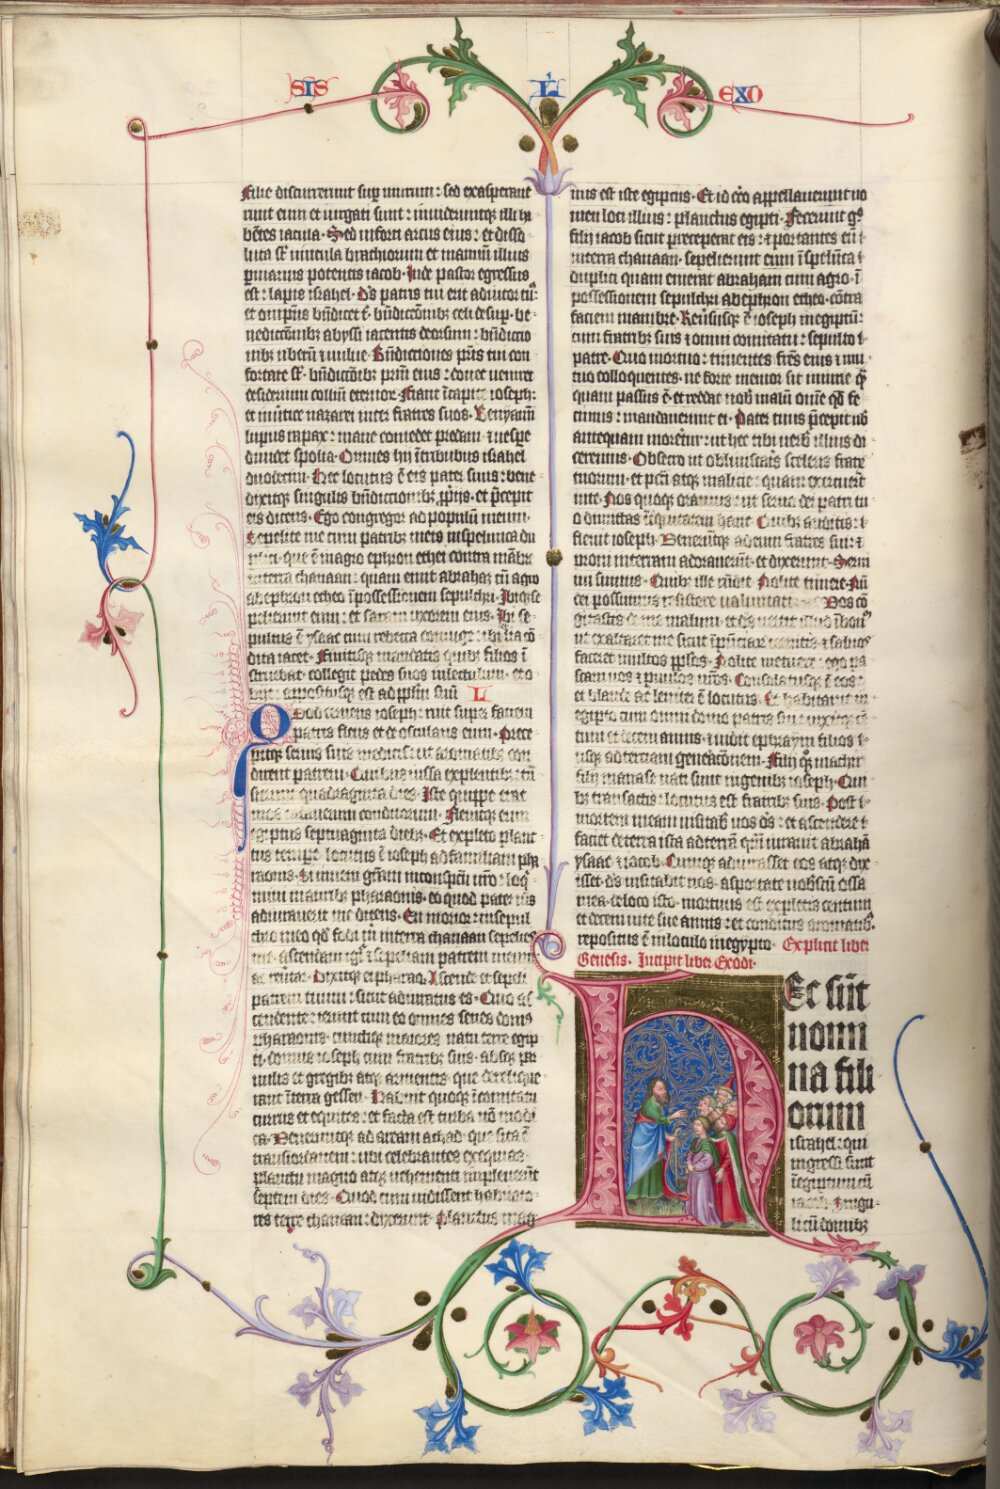 SIS L EXO
filie discurrerunt sup murum : sed exasperaue
runt eum et iurgati sunt : inuideruntq; illi ha
bētes iacula · Sed in forti arcus eius : et disso
luta sūt vincula brachiorum et manuū illius
p manus potentis iacob · Inde pastor egressus
est : lapis israhel · Ds patris tui erit adiutor tu9 :
et omnips bn̄dicet t · bn̄dictōnibz celi desup · be
nedictōnibz abyssi iacentis deorsum : bn̄dictio
nibz uberū et uulue · Bn̄dictiones p̄ris tui con
fortate sūt · bn̄dictōibz prm̄ eius : donec ueniret
desiderium colliū eternor · Fiant ī capite ioseph :
et in ūtice nazarei inter fratres suos · Benyamī
lupus rapax : mane comedet predam · et uespe
diuidet spolia · Omnes hij ī tribubus israhel
duodecim · Hec locutus ē eis pater suus : bene
dixitq; singulis bn̄dictionibz pp̄ijs · et p̄cepit
eis dicens · Ego congregor ad populū meum ·
Sepelite me cum patribz meis in spelunca du
plici · que ē in agro ephron ethei contra mābre
in terra chanaan : quam emit abraham cū agro
ab ephron etheo ī possessionem sepulchri · Ibiq; se
pelierunt eum : et saram uxorem eius · Ibi se
pultus ē ysaac cum rebecca coniuge : ibi lia cō
dita iacet · Finitisq; mandatis quibz filios ī
struebat · collegit pedes suos in lectulum · et o
bijt : appositusq; est ad pp̄lm suū L
Quod cernens ioseph : ruit super faciem
patris flens et deosculans eum · Prece
pitq; seruis suis medicis : ut aromatibz con
dirent patrem · Quibus iussa explentibz : trā
sierunt quadraginta dies · Iste quippe erat
mos cadauerum conditorum · Fleuitq; eum
egiptus septuaginta diebz · Et expleto planc
tus tempe · locutus ē ioseph ad familiam pha
raonis · Si inueni grām in conspectu uro : loq
mini auribz pharaonis · eo quod pater ms
adiurauerit me dicens · En morior : in sepul
chro meo qd fodi m in terra chanaan sepelies
me · ascendam igr ī sepeliam patrem meum
ac reūtar · Dixitq; ei pharao · Ascende et sepeli
patrem tuum : sicut adiuratus es · Quo as
cendente : ierunt cum eo omnes senes dom9
pharaonis · cunctiq; maiores natu terre egip
ti · domus ioseph cum fratribz suis · absq; par
uulis et gregibz atq; armentis · que derelique
rant ī terra gessen · Habuit quoq; ī comitatu
currus et equites : et facta est turba nō modi
ca · Veneruntq; ad aream athad · que sita ē
trans iordanem : ubi celebrantes exequias
planctu magno atq; uehementi impleuerūt
septem dies · Quod cum uidissent habitato
res terre chanaan : dixerunt · Planctus mag
nus est iste egiptijs · Et id cco appellauerunt no
men loci illius : planctus egipti · Fecerunt g°
filij iacob sicut preceperat eis : et portantes eū ī
in terra chanaan · sepelierunt eum ī spelūca
duplici quam emerat abraham cum agro · ī
possessionem sepulchri ab ephron etheo · cōtra
faciem mambre · Reūsusq; ē ioseph in egiptū :
cum fratribz suis et omni comitatu : sepulto
patre · Quo mortuo : timentes frēs eius et mu
tuo colloquentes · ne forte memor sit iniurie q̄
quam passus ē · et reddat nob malū omē qd fe
cimus : mandauerunt ei · Pater tuus p̄cepit nob
antequam moretur : ut hec tibi uerb illius di
ceremus · Obsecro ut obliuiscaris sceleris fratr
tuorum · et pcti atq; malicie : quam exercuerūt
in te · Nos quoq; oramus : ut seruo dei patri tu
o dimittas iniquitatem hanc · Quibz auditis :
fleuit ioseph · Veneruntq; ad eum fratres sui : et
proni in terram adorauerunt · et dixerunt · Serui
tui sumus · Quibz ille rūdit · Nolite timere · Nū
dei possumus resistere uoluntati · Vos cō
gitastis de me malum · et ds uertit illud ī bonū
ut exaltaret me sicut ī p̄nciar cernitis · et saluos
faceret multos pplos · Nolite metuere : ego pa
scam uos et paruulos urōs · Consolatusq; ē eos :
et blande ac leniter ē locutus · Et habitauit in
egipto cum omni domo patris sui : uixitq; cē
tum et decem annis · et uidit ephraym filios
usq; ad terciam generacōnem · Filij q̄q; machir
filij manasse nati sunt in genibz ioseph · Qui
bz transactis : locutus est fratribz suis · Post
mortem meam uisitab uos ds : et ascendere
faciet de terra ista ad terrā quā iurauit abrahā
ysaac et iacob · Cumq; adiurasset eos atq; dix
isset · ds uisitabit uos · asportate uobiscū ossa
mea de loco isto · mortuus est expletis centum
et decem uite sue annis : et conditus aromatibz
repositus ē in loculo in egypto · Explicit liber
Genesis · Incipit liber Exodi ·
HEc sūt
nomi
na fili
orum
israhel : qui
ingressi sunt
ī egiptum cū
iacob · Singu
li cū domibz